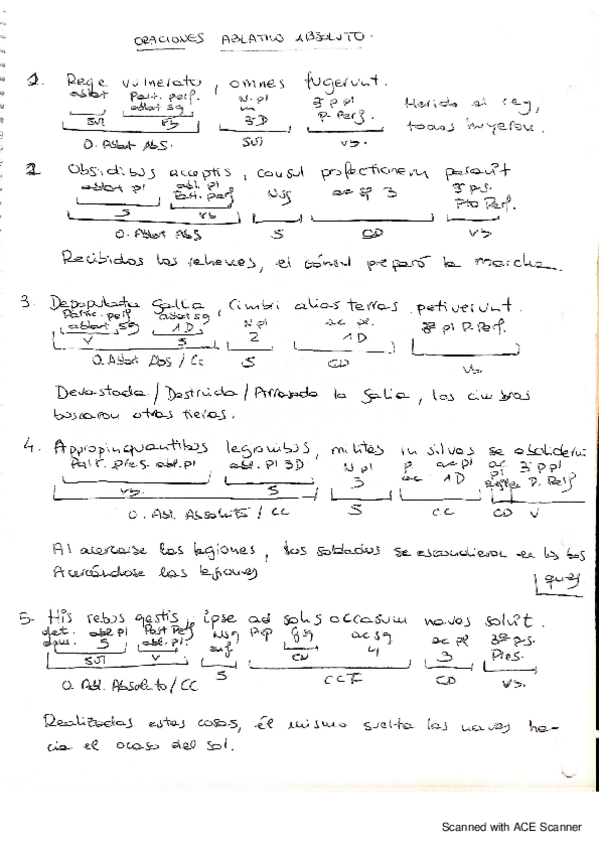 ORACIONES ABLATIVO ABSOLUTO.
1. Rege vulnerato, omnes fugerunt.
ablat Part. perf. N. pl 3ª p pl
ablat sg 3D P. Perf.
SUJ VB SUJ VB.
O. Ablat Abs.
Herido el rey,
todos huyeron.
2 Obsidibus acceptis, consul profectionem paravit
ablat pl abl. pl N sg ac sg 3 3ª p.s.
Part. perf Pto Perf.
S VB
O. Ablat Abs S CD VB
Recibidos los rehenes, el cónsul preparó la marcha.
3. Depopulata Gallia, Cimbri alias terras petiverunt.
Partic. perf ablat sg N pl ac pl. 3ª pl P. Perf.
ablat. sg 1D 2 1D
V S
O. Ablat Abs / CC S CD VB.
Devastada / Destruida / Arrasada la Galia, los cimbros
buscaron otras tierras.
4. Appropinquantibus legionibus, milites in silvas se abdiderunt
Part. Pres. abl. pl abl. pl 3D N pl P ac pl ac 3ª p pl
3 ac 1D pl P. Perf
VB. S
O. Abl. Absoluto / CC S CC CD V
Al acercarse las legiones, los soldados se escondieron en los bos
Acercándose las legiones
ques
5- His rebus gestis, ipse ad solis occasum naves solvit.
det. abl pl Part Perf N sg Prep G sg ac sg ac pl 3ª p.s.
5 abl. pl. 4 3 Pres.
SUJ V CN
O. Abl. Absoluto / CC S CCT CD VB.
Realizadas estas cosas, él mismo suelta las naves ha-
cia el ocaso del sol.
Scanned with ACE Scanner